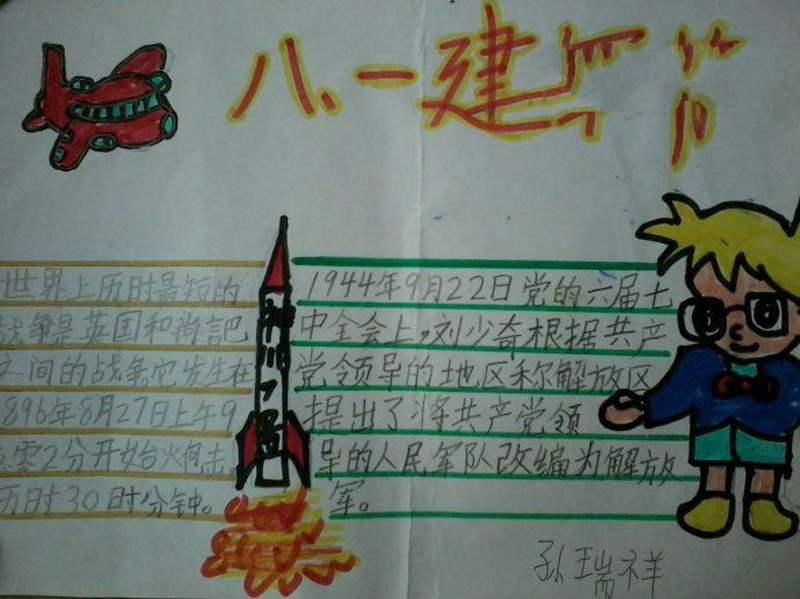 八、一建军节
世界上历时最短的
战争是英国和桑給巴
之间的战争它发生在
896年8月27日上午9
零2分开始火炮击
历时30时分钟。
神州7号
1944年9月22日党的六届七
中全会上,刘少奇根据共产
党领导的地区称解放区
提出了将共产党领
导的人民军队改编为解放
军。
孙瑞祥